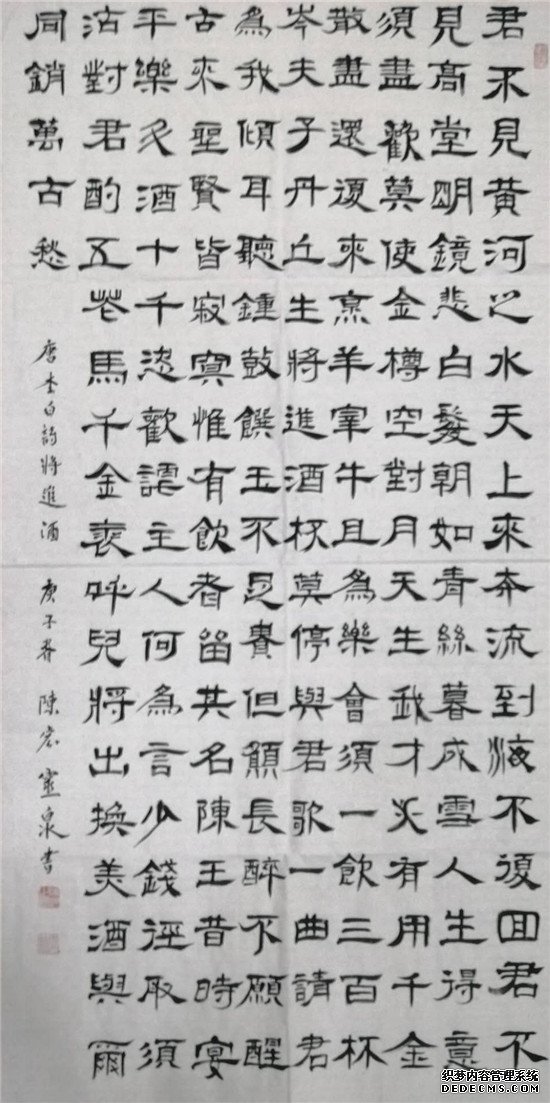 君不見黃河之水天上來奔流到海不復回君不
見高堂明鏡悲白髮朝如青絲暮成雪人生得意
須盡歡莫使金樽空對月天生我才必有用千金
散盡還復來烹羊宰牛且為樂會須一飲三百杯
岑夫子丹丘生將進酒杯莫停與君歌一曲請君
為我傾耳聽鍾鼓饌玉不足貴但願長醉不願醒
古來聖賢皆寂寞惟有飲者留其名陳王昔時宴
平樂斗酒十千恣歡謔主人何為言少錢徑取須
沽對君酌五花馬千金裘呼兒將出換美酒與爾
同銷萬古愁
唐李白詩將進酒 庚子春 陳宏 靈泉書
织梦内容管理系统
DEDECMS.COM